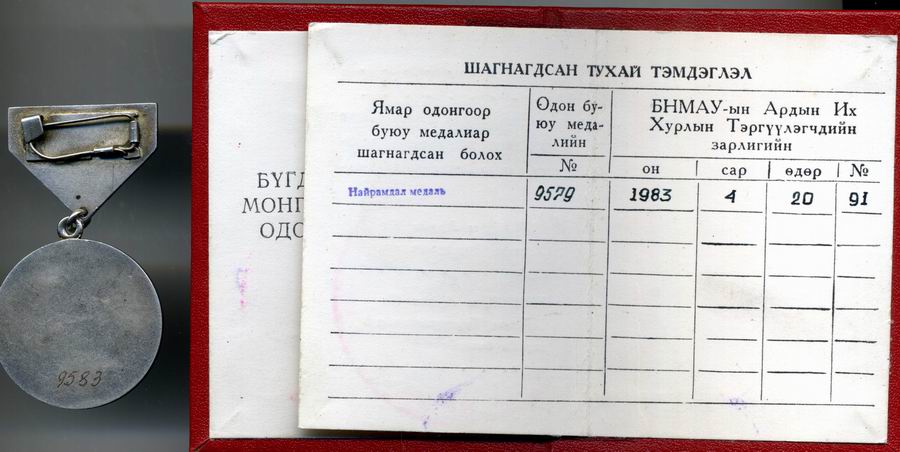 ШАГНАГДСАН ТУХАЙ ТЭМДЭГЛЭЛ
Ямар одонгоор
буюу медалиар
шагнагдсан болох
Одон бу-
юу меда-
лийн
№
БНМАУ-ын Ардын Их
Хурлын Тэргүүлэгчдийн
зарлигийн
он сар өдөр №
Найрамдал медаль 9579 1983 4 20 91
БҮГД
МОНГ
ОДО
9583